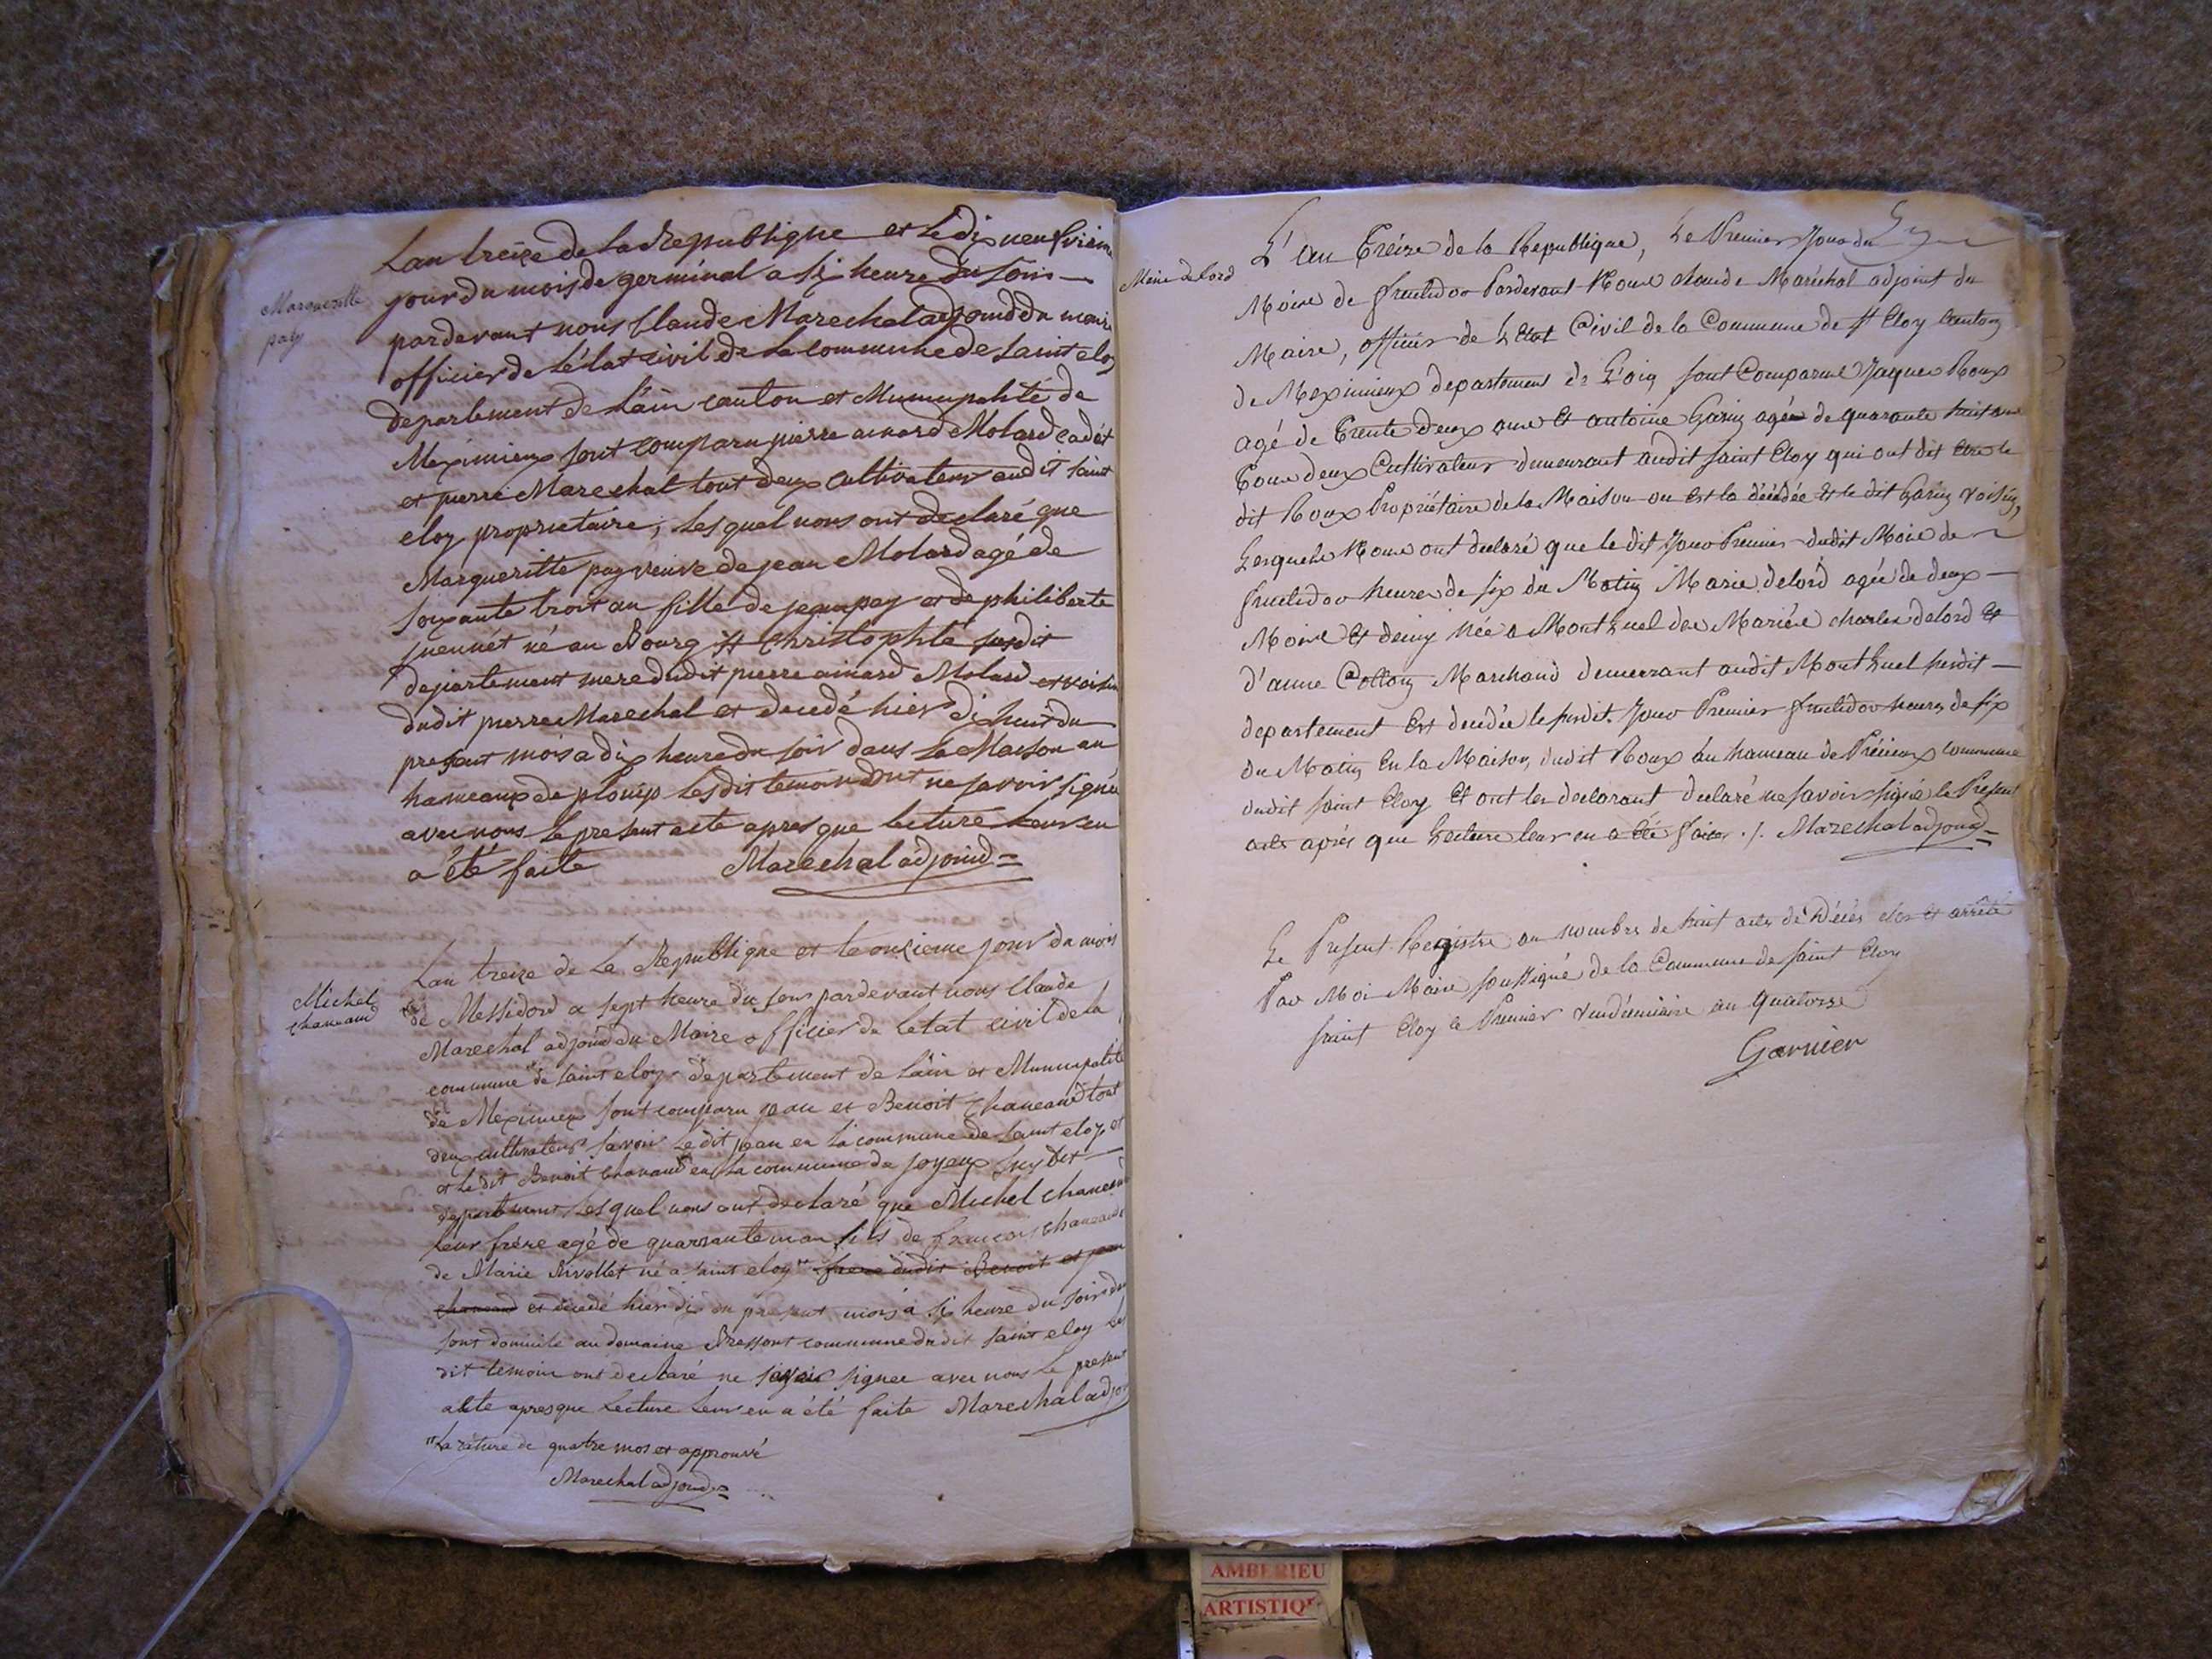 Marguerite
pay
Lan treize de La Republique et Le dix neufvieme
jour du mois de germinal a six heure du soir
pardevant nous Claude Marechal adjoind du maire
officier de L'état civil de La commune de saint eloy
departement de L'ain canton et Municipalité de
Meximieux sont comparu pierre ainard Molard cadét
et pierre Marechal tout deux cultivateur audit saint
eloy proprietaire, Lesquel nous ont declaré que
Margueritte pay veuve de jean Molard agé de
soixante troit an fille de jean pay et de philiberte
né au Bourg St Christophle susdit
departement mere dudit pierre ainard Molard et voisin
dudit pierre Marechal et decedé hier dix huit du
present mois a dix heure du soir dans sa Maison au
hameaux de Les dit temoin ont ne savoir signée
avec nous Le present acte apres que lecture Leur en
a été faite Marechal adjoind
Michel
chaneand
Lan treize de La Republique et le onzieme jour du mois
de Messidord a sept heure du soir pardevant nous Claude
Marechal adjoind du Maire officier de Letat civil de la
commune de saint eloy departement de L'ain et Municipalité
de Meximieux sont comparu jean et Benoit chaneand tout
deux cultivateur savoir Le dit jean en La commune de saint eloy et
et Le dit Benoit chaneand en La commune de joyeux susdit
departement Lesquel nous ont declaré que Michel chaneand
Leur frere agé de quarante fils de francois chaneand
de Marie Rivollet né a saint eloy frere dudit Benoit et jean
chaneand et decedé hier dix du present mois a six heure du soir
sont domicile au domaine commune dudit saint eloy Les
dit temoin ont declaré ne savoir signer avec nous Le present
acte apres que Lecture Leur en a été faite Marechal adjoi
La rature de quatre mos et approuvé
Marechal adjoind
Marie delord
L'an Treize de la Republique, Le Premier Jour du
Moire de fructidor Pardevant Nous claude Maréchal adjoint du
Maire, officier de L'Etat Civil de la Commune de St Eloy canton
de Meximieux departement de L'ain sont Comparus Jaques Roux
agé de Trente deux ans Et antoine Garin agée de quarante huit ans
Tous deux Cultivateur demeurant audit saint Eloy qui ont dit être le
dit Roux Propriétaire de la Maison ou Est la décédée Et le dit Garin voisin,
Lesquels Nous ont declaré que le dit Jour Premier dudit Moire de
fructidor heures de six du Matin Marie delord agée de deux
Moire Et demy Née a Montluel des Mariée charles delord Et
d'anne Colton Marchand demeurant audit Montluel susdit
departement Est decedée le susdit Jour Premier fructidor heures de six
du Matin En la Maison dudit Roux au hameau de commune
dudit saint Eloy Et ont les declarant declaré ne savoir signé le Present
acte après que Lecture leur en a été faite ./. Marechal adjoind
Le Present Registre au nombre de huit actes de Décès clos Et arrêté
Par Moi Maire soussigné de la Commune de saint Eloy
saint Eloy le Premier vendemiaire an quatorze
Garnier
AMBERIEU
ARTISTIQUE